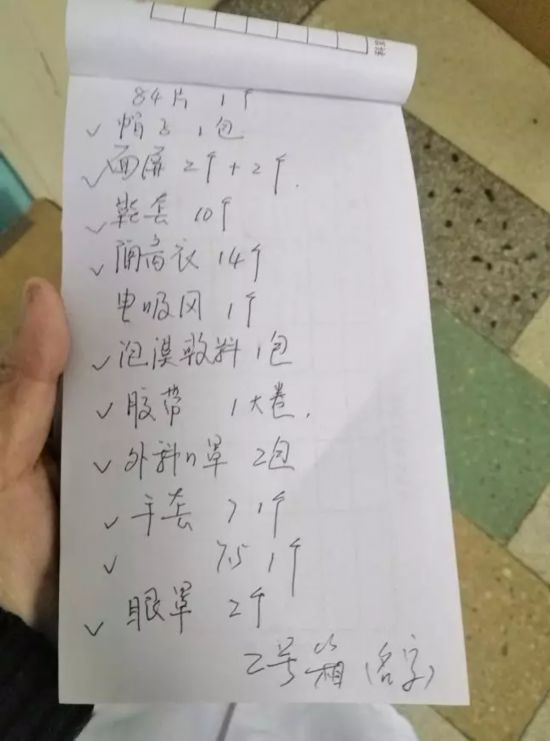 84片 1个
✓ 帽子 1包
✓ 面屏 2个+2个.
✓ 靴套 10个
✓ 隔离衣 14个
电吹风 1个
✓ 泡沫敷料 1包
✓ 胶带 1大卷.
✓ 外科口罩 2包
✓ 手套 7 1个
✓ 7.5 1个
✓ 眼罩 2个
2号箱(名字)